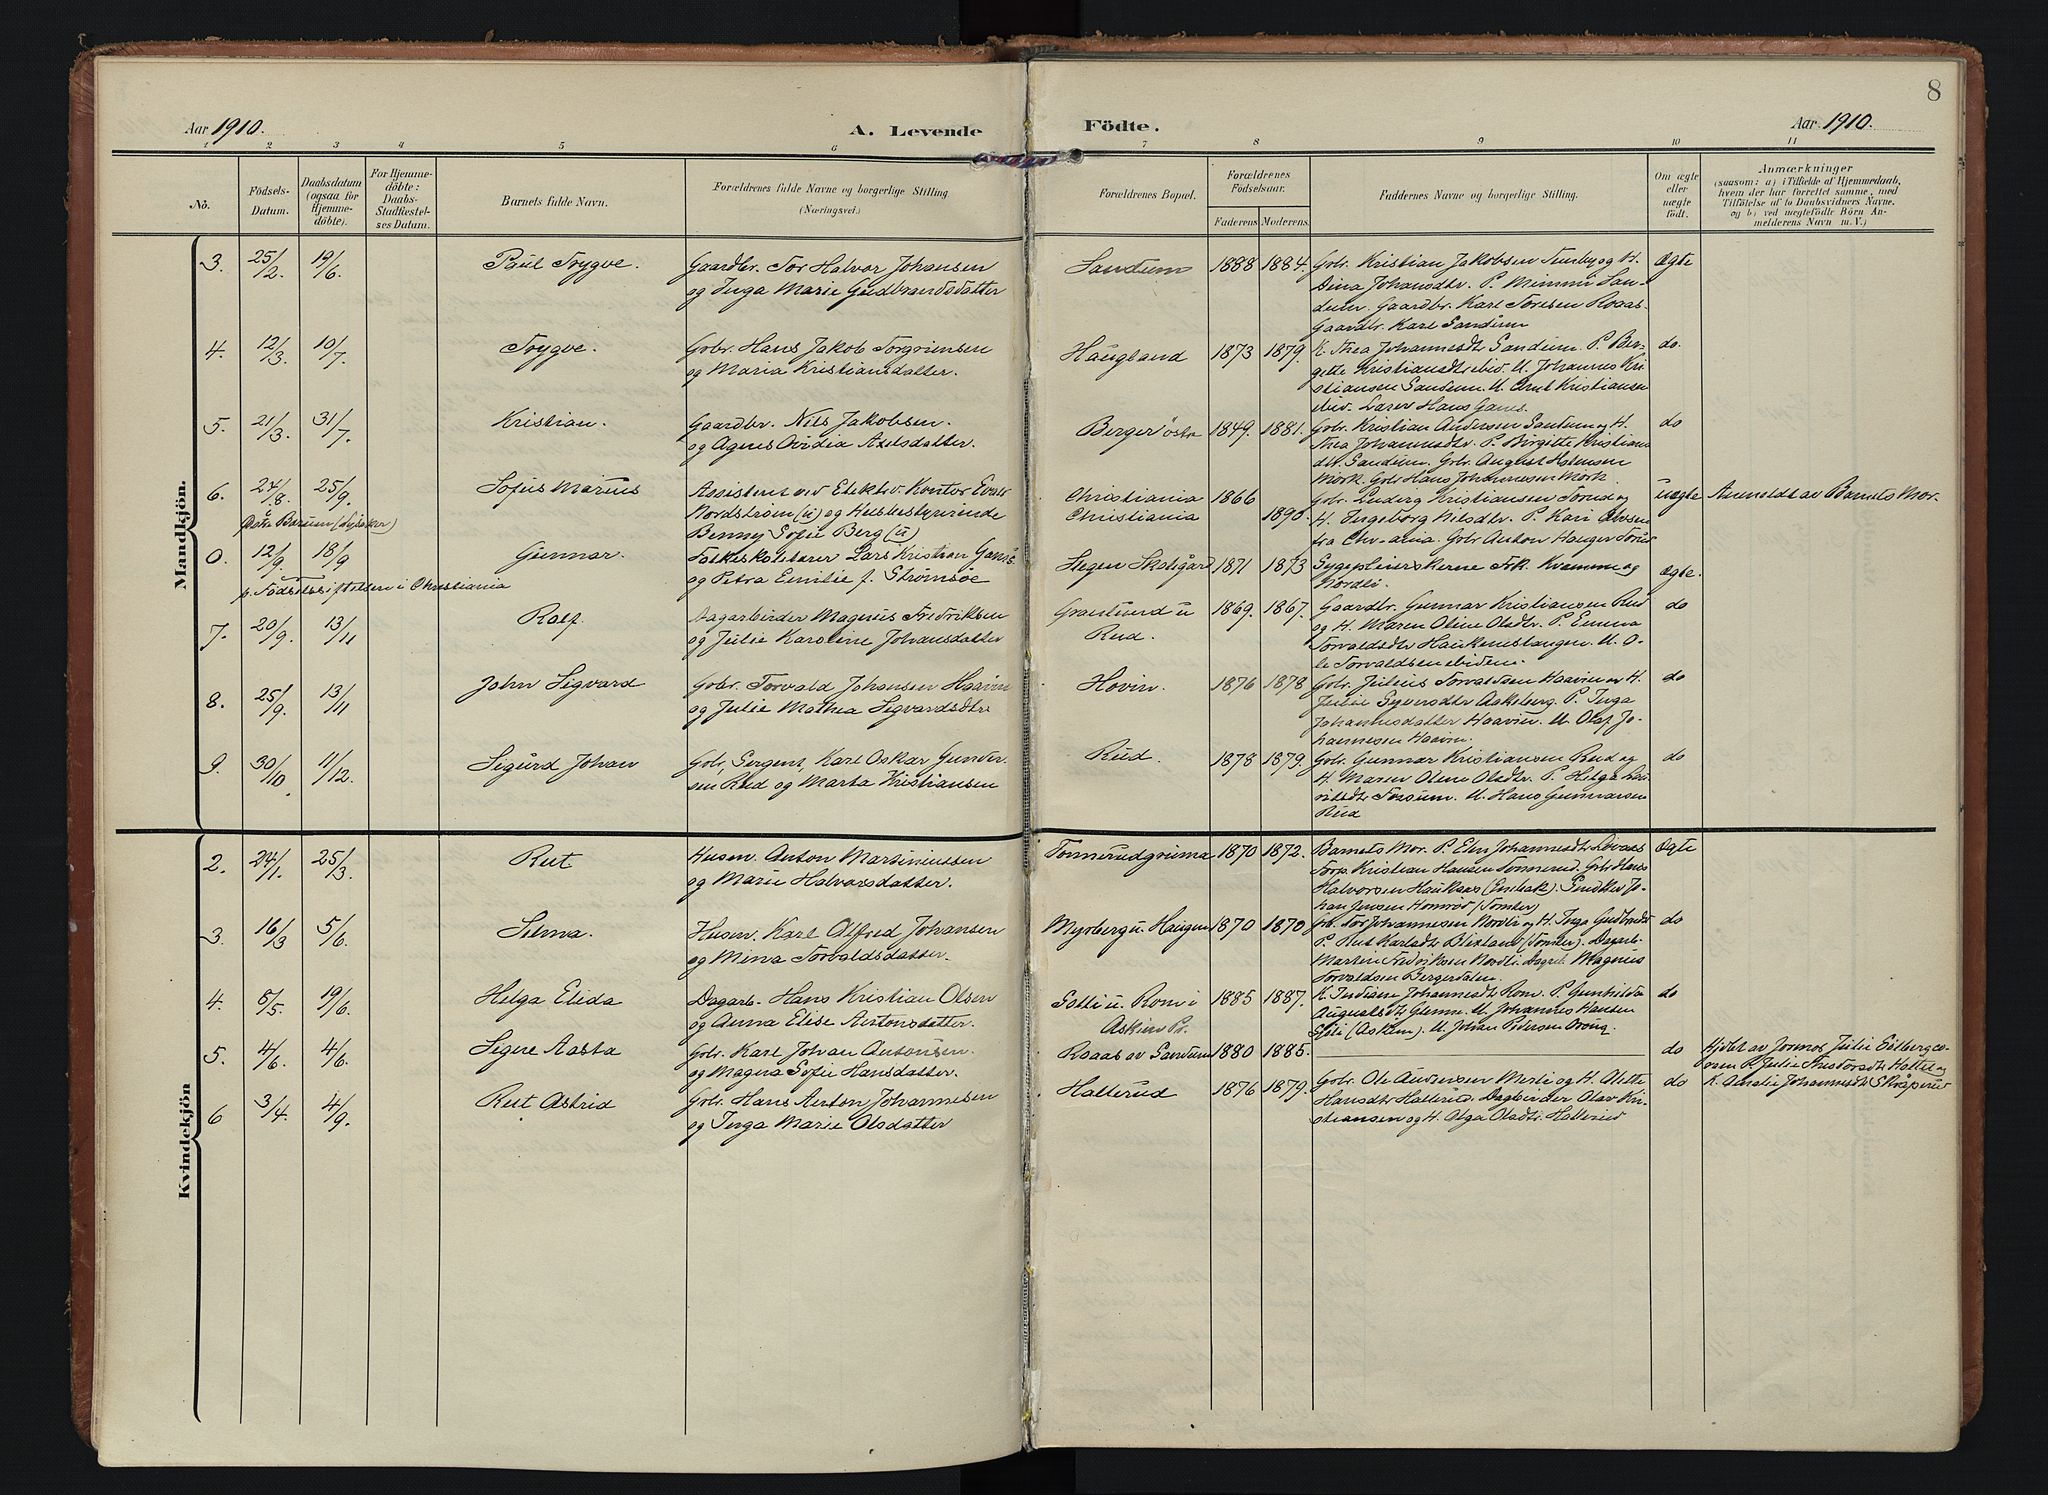 8
Aar 1910.
A. Levende
Födte.
Aar 1910.
1 2 3 4 5 6 7 8 9 10 11
No.
Födsels-
Datum.
Daabsdatum
(ogsaa for
Hjemme-
döbte).
For Hjemme-
döbte:
Daabs-
Stadfestel-
ses Datum.
Barnets fulde Navn.
Forældrenes fulde Navne og borgerlige Stilling.
(Næringsvei.)
Forældrenes Bopæl.
Forældrenes
Födselsaar.
Faderens Moderens.
Faddernes Navne og borgerlige Stilling.
Om ægte
eller
uægte
födt.
Anmærkninger
(saasom: a) i Tilfælde af Hjemmedaab,
hvem der har forrettet samme, med
Tilföielse af to Daabsvidners Navne,
og b) ved uægtefödte Börn An-
melderens Navn m. V.)
Mandkjön.
3. 25/2. 19/6. Paul Trygve. Gaardbr. Tor Halvor Johansen
og Inga Marie Gudbrandsdatter
Sandum 1888 1884. Gbr. Kristian Jakobsen og H.
Dina Johansdtr. P. Mimmi San-
dum. Gaardbr. Karl Toresen Roaas
Gaardbr. Karl Sandum
Ægte
4. 12/3. 10/7. Trygve. Gbr. Hans Jakob Torgrimsen
og Maria Kristiansdatter.
Haugland 1873 1879. K. Thea Johannesdtr Sandum. P. Bir-
gitte Kristiansdtr ibid. U. Johannes Kri
stiansen Sandum. U. Kristiansen
ibid. Hans
do.
5. 21/3. 31/7. Kristian. Gaardbr. Nils Jakobsen.
og Agnes Ovidia Axelsdatter.
Berger östre 1849. 1881. Gbr. Kristian Andersen Sandum og H.
Thea Johannesdtr. P. Birgitte Kristians
dtr. Sandum. Gbr. August
Mörk. Gbr Hans Johannesen Mörk.
do
6. 24/8. 25/9. Sofus Marius Assistent ved Elektr. Kontor
Östre Bærum
Nordström (u) og Husbestyrerinde
Benny Sofie Berg (u)
Christiania 1866
Christiania 1890.
Gbr. Kristiansen Torud og
H. Ingeborg Nilsdtr. P. Kari Olsen
fra Chr-ania. Gbr Anton Hauger
uægte Anmeldt av Barnets Mor.
0. 12/9. 18/9 Gunnar. Folkeskolelærer Lars Kristian
p. Födselsstiftelsen i Christiania
og Petra Emilie f. Strömsöe
Skolegård 1871 1873 Sygepleierskerne Frk. Kvamme og
Nordli.
Ægte.
7. 20/9. 13/11 Rolf Dagarbeider Magnus Fredriksen
og Julie Karoline Johansdatter
Granlund u
Rud. 1869. 1867. Gaardbr. Gunnar Kristiansen Rud
og H. Maren Oline Olsdtr. P. Emma
Torvaldsdtr Haukenestangen. U. O-
le Torvaldsen ibidem.
do
8. 25/9. 13/11 John Sigvard Gbr. Torvald Johansen Haavin
og Julie Mathea Sigvardsdtr
Hovin. 1876 1878 Gbr. Julius Torvaldsen Haavin og H.
Julie Syversdtr Aakeberg. P. Inga
Johannesdatter Haavin. U. Olaf Jo-
hannesen Haavin.
do
9. 30/10. 11/12. Sigurd Johan Gbr. Sergent Karl Oskar Gunder
sen Rud og Marta Kristiansen
Rud. 1878 1879. Gbr. Gunnar Kristiansen Rud og
H. Maren Oline Olsdtr. P. Helga
Torsum. U. Hans Gunnarsen
Rud
do
Kvindekjön
2. 24/1. 25/3. Rut Husm. Anton Martiniussen
og Marie Halvorsdatter.
Tomerudgrima 1870 1872. Barnets Mor. P. Johannesdtr
Kristian Hansen Tomerud. Gbr Hans
Halvorsen Haukaas (Enebak). Jo-
han Jensen (Tomter)
Ægte
3. 16/3 5/6. Selma. Husm. Karl Alfred Johansen
og Mina Torvaldsdatter.
Myrberg u. Haugen 1870 1870 Gbr. Tor Johannesen Nordli og H. Inga
P. Rut Karlsdtr Blixland (Tomter). Dagarb.
Martin Fredriksen Nordli. Dagarb. Magnus
Torvaldsen Bergerdalen.
do
4. 5/5. 19/6. Helga Elida Dagarb. Hans Kristian Olsen
og Anna Elise Antonsdatter.
Sotti u. Rom i
Askim Pr. 1885 1887. K. Indiane Johannesdtr Rom. P. Gunhilda
Augustsdtr Glenne. U. Johannes Hansen
(Askim). U. Johan Pedersen
do
5. 4/6. 4/6. Signe Aasta Gbr. Karl Johan Antonsen.
og Magna Sofie Hansdatter.
Roaas av Sandum 1880 1885.
do Hjdbt av Jormor Julie
P. Julie
K. Amalie Johannesdtr
6 3/4. 4/9. Rut Astrid Gbr. Hans Anton Johannesen
og Inga Marie Olsdatter
Hallerud 1876 1879. Gbr. Ole Andersen Merli og H. Alette
Hansdtr Hallerud. Dagarbeider Olav Kri-
stiansen og H. Olga Olsdtr. Hallerud
do